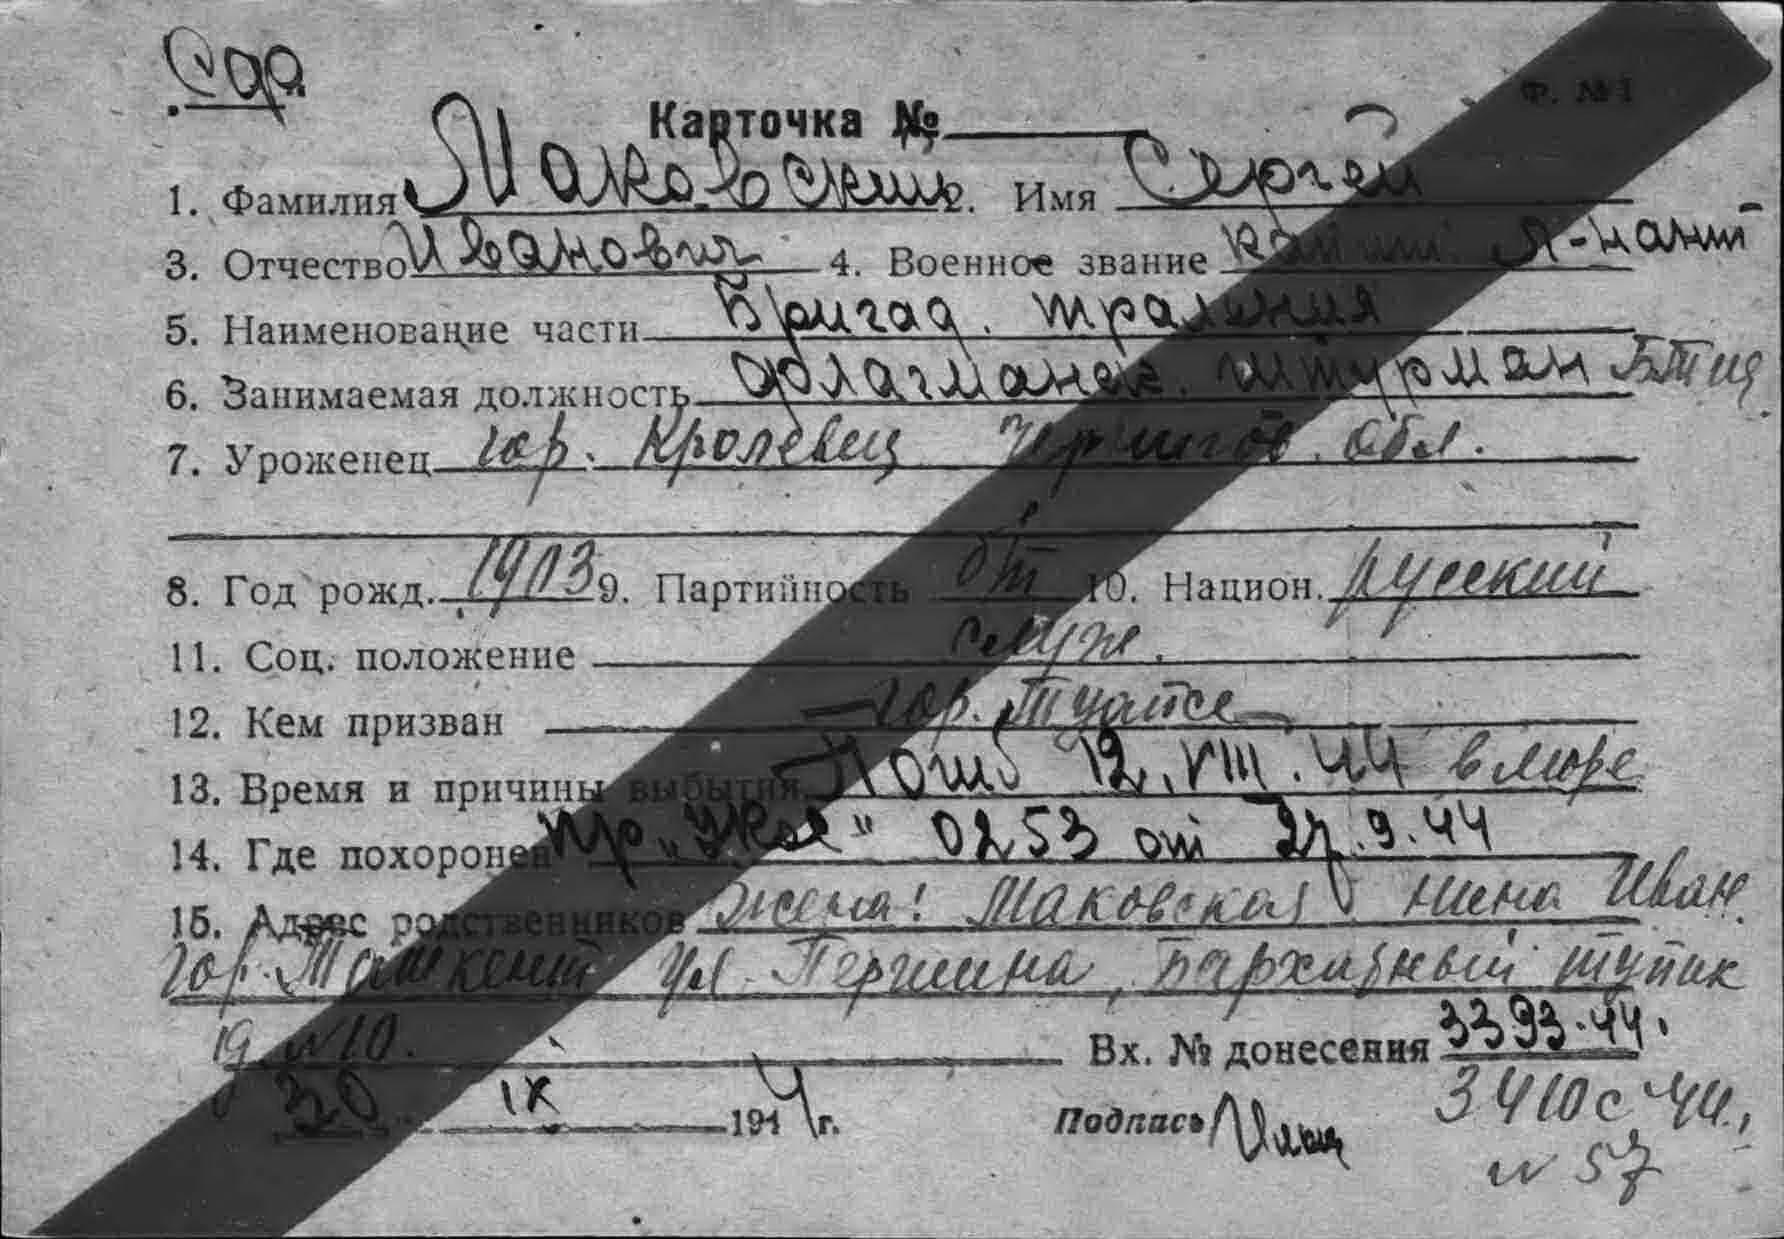 Ф. №1
Карточка №
1. Фамилия Маковский 2. Имя Сергей
3. Отчество Иванович 4. Военное звание капит. л-нант
5. Наименование части Бригад. траления
6. Занимаемая должность флагманск. штурман
7. Уроженец гор. Кролевец Чернигов. обл.
8. Год рожд. 1903 9. Партийность б/п 10. Национ. русский
11. Соц. положение служ.
12. Кем призван гор. Туапсе
13. Время и причины выбытия Погиб 12.VIII.44 в море
14. Где похоронен пр. 0253 от 27.9.44
15. Адрес родственников Жена: Маковская Нина Иван.
гор. Ташкент ул. Першина, Бархатный тупик
д N10.
Вх. № донесения 3393-44.
30 IX 1944 г. Подпись
3410с 44.,
N 57